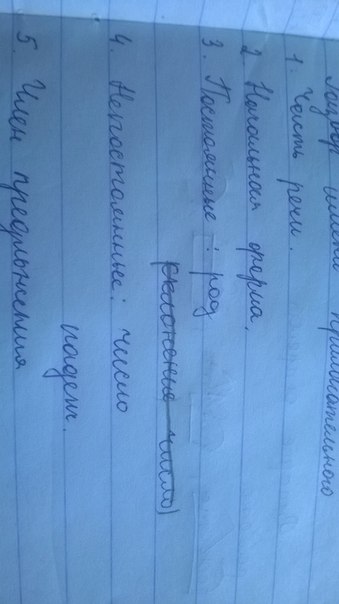 Разбор имени прилагательного
1. Часть речи.
2 Начальная форма.
3. Постоянные : род
(склонение число)
4. Непостоянные: число
падеж.
5. Член предложения